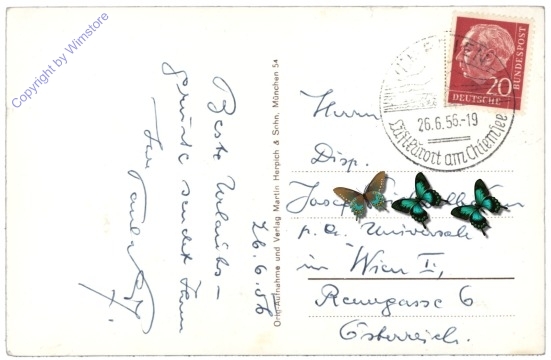 Copyright by Wimstore
Beste Urlaubs-
grüße sendet Ihnen
Ihr
26.6.56
Orig.-Aufnahme und Verlag Martin Herpich & Sohn, München 54
20
DEUTSCHE BUNDESPOST
26.6.56.-19
Luftkurort am Chiemsee
Herrn
Disp.
Josef
p.a. Universale
in Wien I.,
Renngasse 6
Österreich.